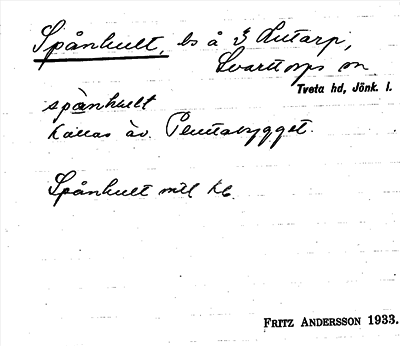 Spånhult, ls å Ö Lutarp,
Svarttorps sn
Tveta hd, Jönk. l.
spånhult
Kallas äv. Pennabygget.
Spånhult mtl kb.
FRITZ ANDERSSON 1933.